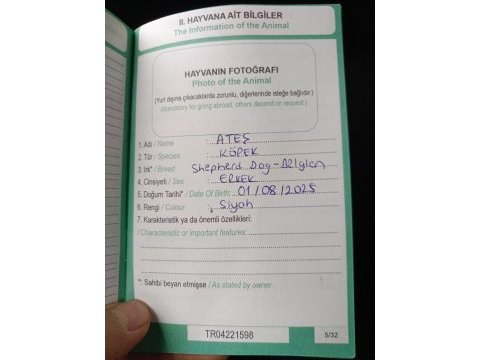 II. HAYVANA AİT BİLGİLER
The Information of the Animal
HAYVANIN FOTOĞRAFI
Photo of the Animal
(Yurt dışına çıkacaklarda zorunlu, diğerlerinde isteğe bağlıdır.)
(Mandatory for going abroad, others depend on request.)
1. Adı / Name : ATEŞ
2. Tür / Species : KÖPEK
3. Irk* / Breed : Shepherd Dog-Belgian
4. Cinsiyeti / Sex : ERKEK
5. Doğum Tarihi* / Date Of Birth: 01/08/2025
6. Rengi / Colour : Siyah
7. Karakteristik ya da önemli özellikleri:
/ Characteristic or important features:
*: Sahibi beyan etmişse / As stated by owner
TR04221598
5/32